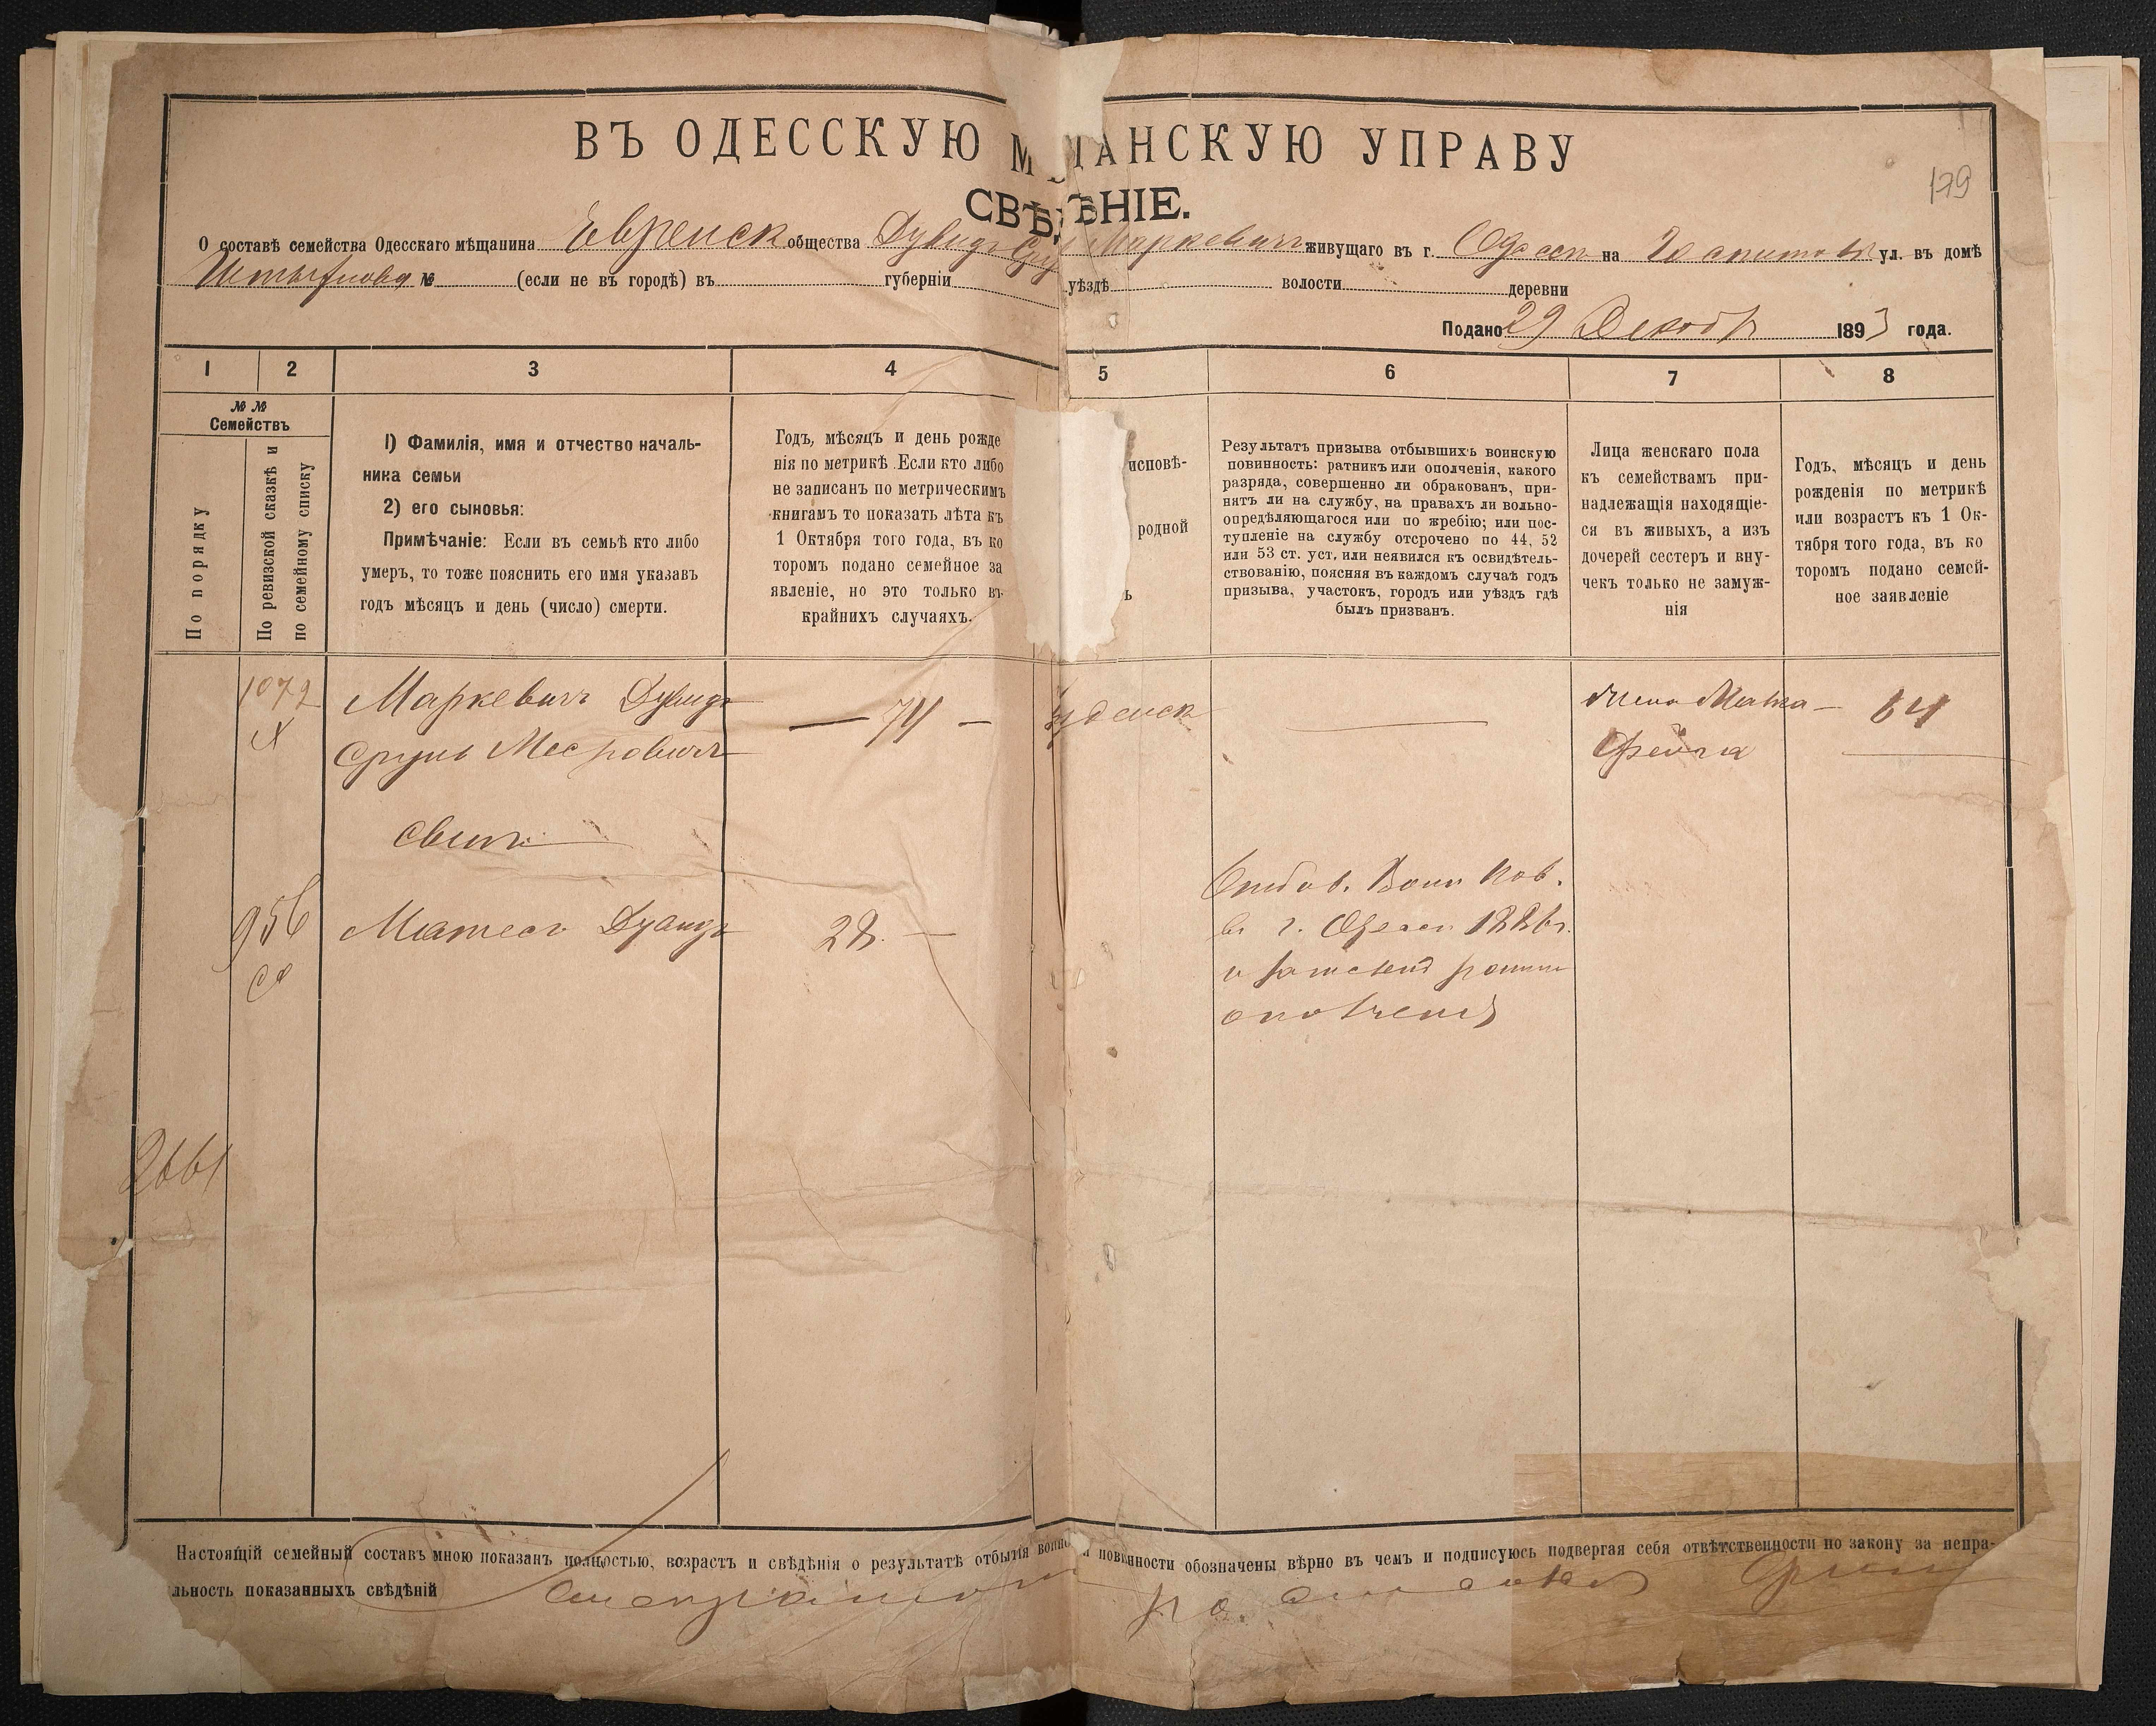 ВЪ ОДЕССКУЮ М ЩАНСКУЮ УПРАВУ
179
СВѢДѢНІЕ.
О составѣ семейства Одесскаго мѣщанина Еврейск общества Дувидъ Сру Маркевичъ живущаго въ г. Одессѣ на ул. въ домѣ
№ (если не въ городѣ) въ губерніи уѣздѣ волости деревни
Подано 29 Декабр 1893 года.
1 2 3 4 5 6 7 8
№ №
Семействъ
По порядку
По ревизской сказкѣ и
по семейному списку
1) Фамилія, имя и отчество началь-
ника семьи
2) его сыновья:
Примѣчаніе: Если въ семьѣ кто либо
умеръ, то тоже пояснить его имя указавъ
годъ мѣсяцъ и день (число) смерти.
Годъ, мѣсяцъ и день рожде
нія по метрикѣ. Если кто либо
не записанъ по метрическимъ
книгамъ то показать лѣта къ
1 Октября того года, въ ко
торомъ подано семейное за
явленіе, но это только въ
крайнихъ случаяхъ.
исповѣ-
родной
ъ
Результатъ призыва отбывшихъ воинскую
повинность: ратникъ или ополченія, какого
разряда, совершенно ли обракованъ, при-
нятъ ли на службу, на правахъ ли вольно-
опредѣляющагося или по жребію; или пос-
тупленіе на службу отсрочено по 44, 52
или 53 ст. уст. или неявился къ освидѣтель-
ствованію, поясняя въ каждомъ случаѣ годъ
призыва, участокъ, городъ или уѣздъ гдѣ
былъ призванъ.
Лица женскаго пола
къ семействамъ при-
надлежащія находящіе-
ся въ живыхъ, а изъ
дочерей сестеръ и вну-
чекъ только не замуж-
нія
Годъ, мѣсяцъ и день
рожденія по метрикѣ
или возрастъ къ 1 Ок-
тября того года, въ ко
торомъ подано семей-
ное заявленіе
1072 Маркевичъ Дувидъ — 74 — Іудейск — Жена Малка — 64
Сруль Мееровичъ Фейга
Сынъ
Отбыв. Воин Пов.
956 Матесъ Дувидъ 28. — въ г. Одессѣ 1886 г.
и зачислен ратник
ополченія
2661
Настоящій семейный составъ мною показанъ полностью, возрастъ и свѣдѣнія о результатѣ отбытія воинс й повинности обозначены вѣрно въ чемъ и подписуюсь подвергая себя отвѣтственности по закону за непра-
льность показанныхъ свѣдѣній